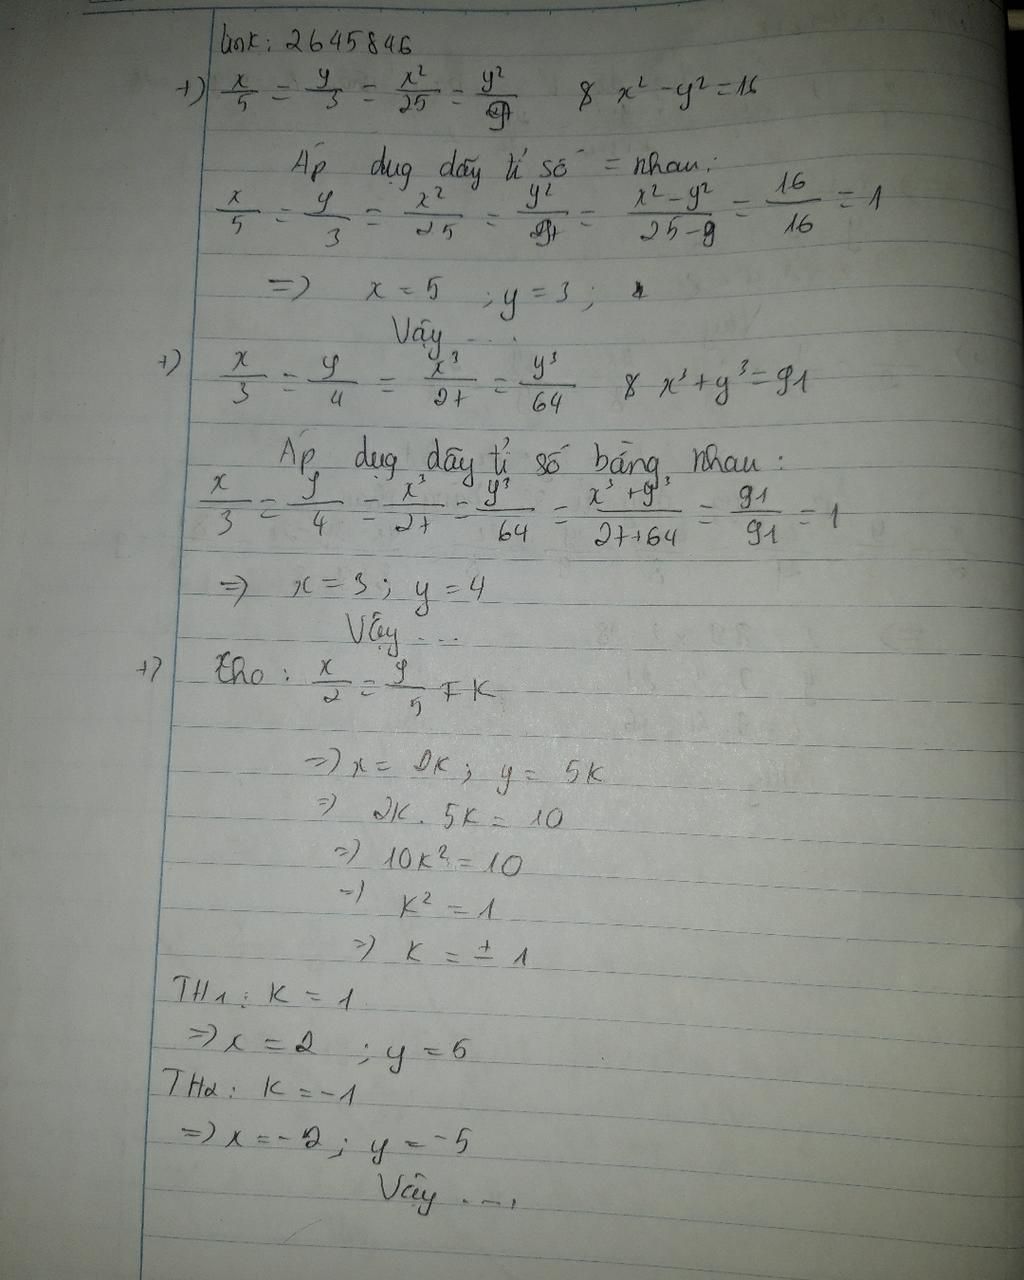 link: 2645846
+) x/5 = y/3 = x²/25 = y²/9 & x² - y² = 16
Áp dụg dãy tỉ số = nhau:
x/5 = y/3 = x²/25 = y²/9 = x² - y²/25 - 9 = 16/16 = 1
=) x = 5 ; y = 3 ;
Vậy ....
+) x/3 = y/4 = x³/27 = y³/64 & x³ + y³ = 91
Áp dụg dãy tỉ số bằng nhau :
x/3 = y/4 = x³/27 = y³/64 = x³ + y³/27+64 = 91/91 = 1
=) x = 3 ; y = 4
Vậy ...
+) : x/2 = y/5 = K
=) x = 2K ; y = 5K
=) 2K . 5K = 10
=) 10K² = 10
=) K² = 1
=) K = ± 1
TH1 : K = 1
=) x = 2 ; y = 5
TH2 : K = -1
=) x = -2 ; y = -5
Vậy ....